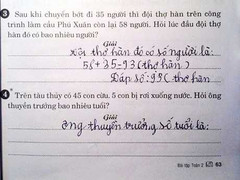 3 Sau khi chuyển bớt đi 35 người thì đội thợ hàn trên công
trình làm cầu Phú Xuân còn lại 58 người. Hỏi lúc đầu đội thợ
hàn đó có bao nhiêu người?
Giải
Đội thợ hàn đó có số người là:
58 + 35 = 93 (thợ hàn)
Đáp số: 93 thợ hàn
4* Trên tàu thủy có 45 con cừu. 5 con bị rơi xuống nước. Hỏi ông
thuyền trưởng bao nhiêu tuổi?
Giải
Ông thuyền trưởng số tuổi là:
Bài tập Toán 2 63